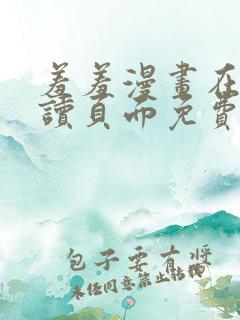 羞羞漫畫在
讀頁面免費
包子要有漿
未任同意禁止轉載